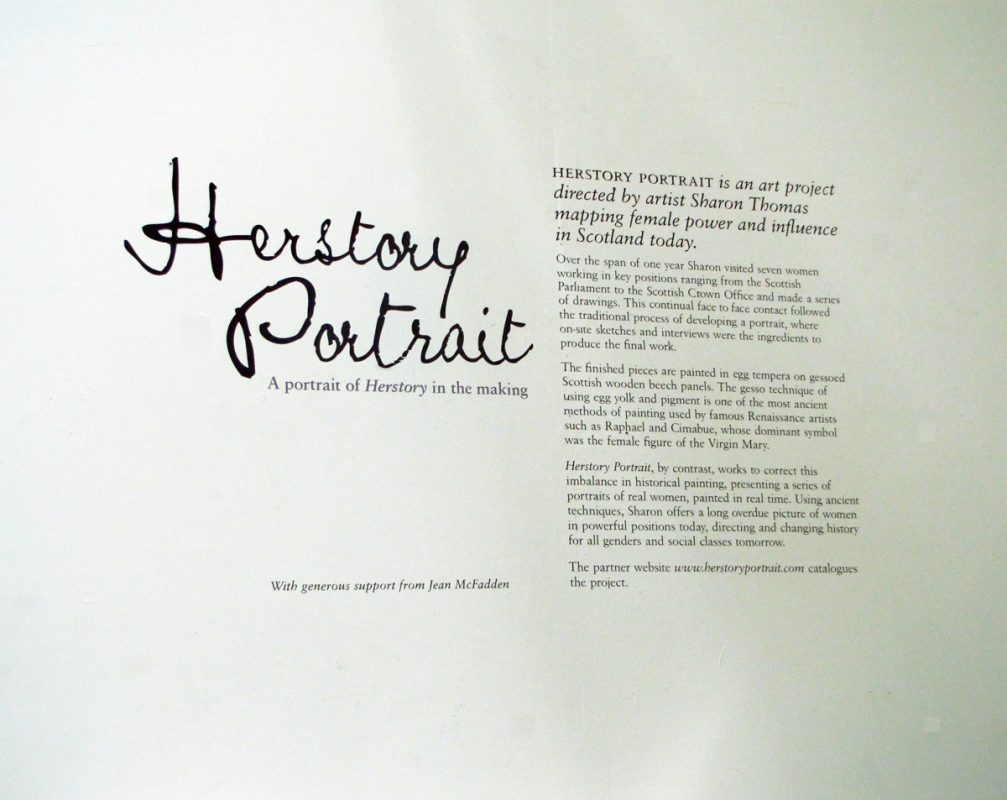 Herstory
Portrait
A portrait of Herstory in the making
With generous support from Jean McFadden
HERSTORY PORTRAIT is an art project
directed by artist Sharon Thomas
mapping female power and influence
in Scotland today.
Over the span of one year Sharon visited seven women
working in key positions ranging from the Scottish
Parliament to the Scottish Crown Office and made a series
of drawings. This continual face to face contact followed
the traditional process of developing a portrait, where
on-site sketches and interviews were the ingredients to
produce the final work.
The finished pieces are painted in egg tempera on gessoed
Scottish wooden beech panels. The gesso technique of
using egg yolk and pigment is one of the most ancient
methods of painting used by famous Renaissance artists
such as Raphael and Cimabue, whose dominant symbol
was the female figure of the Virgin Mary.
Herstory Portrait, by contrast, works to correct this
imbalance in historical painting, presenting a series of
portraits of real women, painted in real time. Using ancient
techniques, Sharon offers a long overdue picture of women
in powerful positions today, directing and changing history
for all genders and social classes tomorrow.
The partner website www.herstoryportrait.com catalogues
the project.